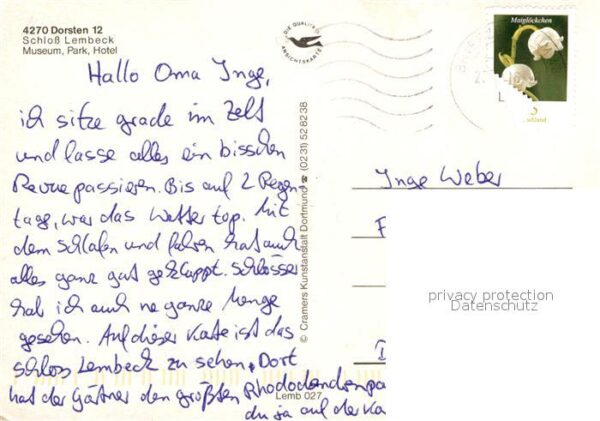 4270 Dorsten 12
Schloß Lembeck
Museum, Park, Hotel
DIE QUALITÄTS
ANSICHTSKARTE
Maiglöckchen
Hallo Oma Inge,
ich sitze grade im Zelt
und lasse alles ein bisschen
Revue passieren. Bis auf 2 Regen
tage, war das Wetter top. Mit
dem schlafen und fahren hat auch
alles ganz gut geklappt. Schlösser
hab ich auch ne ganze Menge
gesehen. Auf dieser Karte ist das
schloss Lembeck zu sehen. Dort
hat der Gärtner den größten Rhododendrenpa
du ja auf der Ka
© Cramers Kunstanstalt Dortmund ☎ (0231) 52 82 38
Lemb 027
Inge Weber
privacy protection
Datenschutz